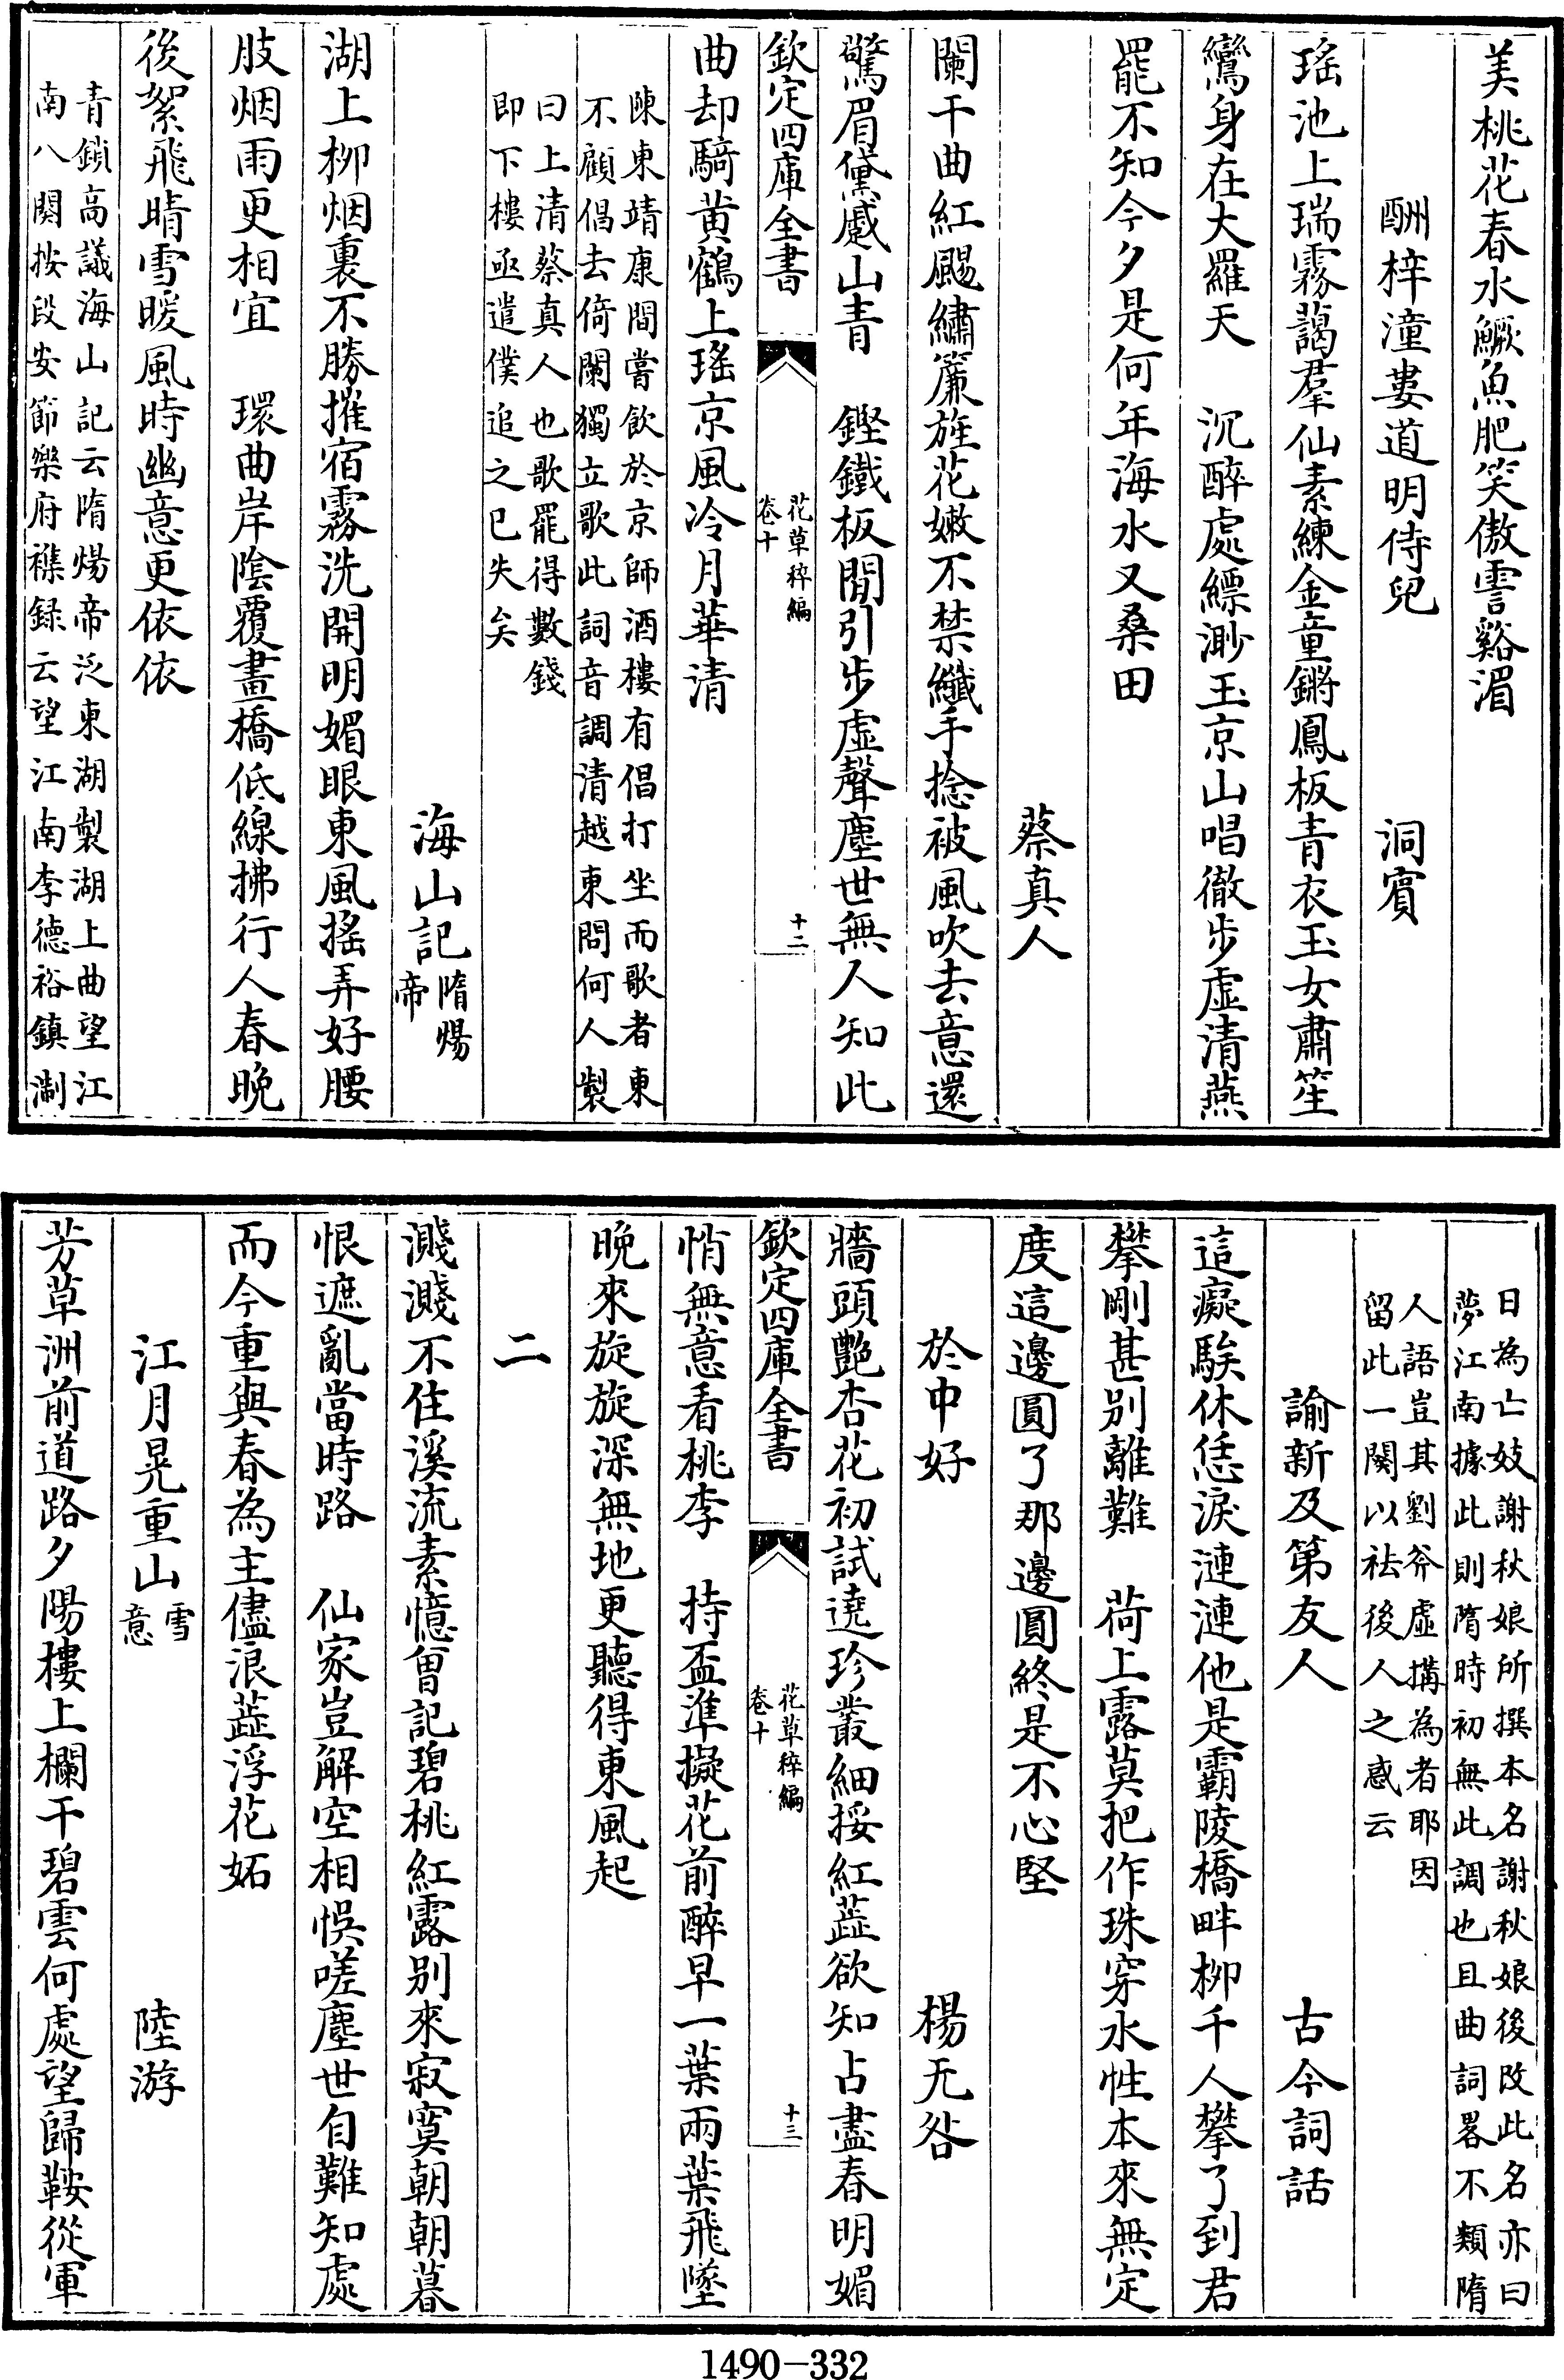 美桃花春水鱖魚肥笑傲霅谿湄
酬梓潼婁道明侍兒　洞賓
瑤池上瑞霧藹羣仙素練金童鏘鳳板青衣玉女肅笙
鸞身在大羅天　沉醉處縹渺玉京山唱徹步虛清燕
罷不知今夕是何年海水又桑田
蔡真人
闌干曲紅颺繡簾旌花嫩不禁纖手捻被風吹去意還
驚眉黛蹙山青　鏗鐵板閒引步虛聲塵世無人知此
欽定四庫全書　花草稡編　卷十　十二
曲却騎黃鶴上瑤京風冷月華清
陳東靖康間嘗飲於京師酒樓有倡打坐而歌者東
不顧倡去倚闌獨立歌此詞音調清越東問何人製
曰上清蔡真人也歌罷得數錢
即下樓亟遣僕追之已失矣
海山記隋煬帝
湖上柳烟裏不勝摧宿霧洗開明媚眼東風搖弄好腰
肢烟雨更相宜　環曲岸陰覆畫橋低線拂行人春晚
後絮飛晴雪暖風時幽意更依依
青鎖高議海山記云隋煬帝泛東湖製湖上曲望江
南八闋按段安節樂府襍録云望江南李德裕鎮淛
日為亡妓謝秋娘所撰本名謝秋娘後改此名亦曰
夢江南據此則隋時初無此調也且曲詞畧不類隋
人語豈其劉斧虛搆為者耶因
留此一闋以祛後人之惑云
諭新及第友人　古今詞話
這癡騃休恁淚漣漣他是霸陵橋畔柳千人攀了到君
攀剛甚別離難　荷上露莫把作珠穿水性本來無定
度這邊圓了那邊圓終是不心堅
於中好　楊无咎
牆頭艷杏花初試遶珍叢細挼紅蘂欲知占盡春明媚
欽定四庫全書　花草稡編　卷十　十三
悄無意看桃李　持盃準擬花前醉早一葉兩葉飛墜
晚來旋旋深無地更聽得東風起
二
濺濺不住溪流素憶曾記碧桃紅露別來寂寞朝朝暮
恨遮亂當時路　仙家豈解空相悞嗟塵世自難知處
而今重與春為主儘浪蘂浮花妬
江月晃重山雪意　陸游
芳草洲前道路夕陽樓上欄干碧雲何處望歸鞍從軍
1490-332